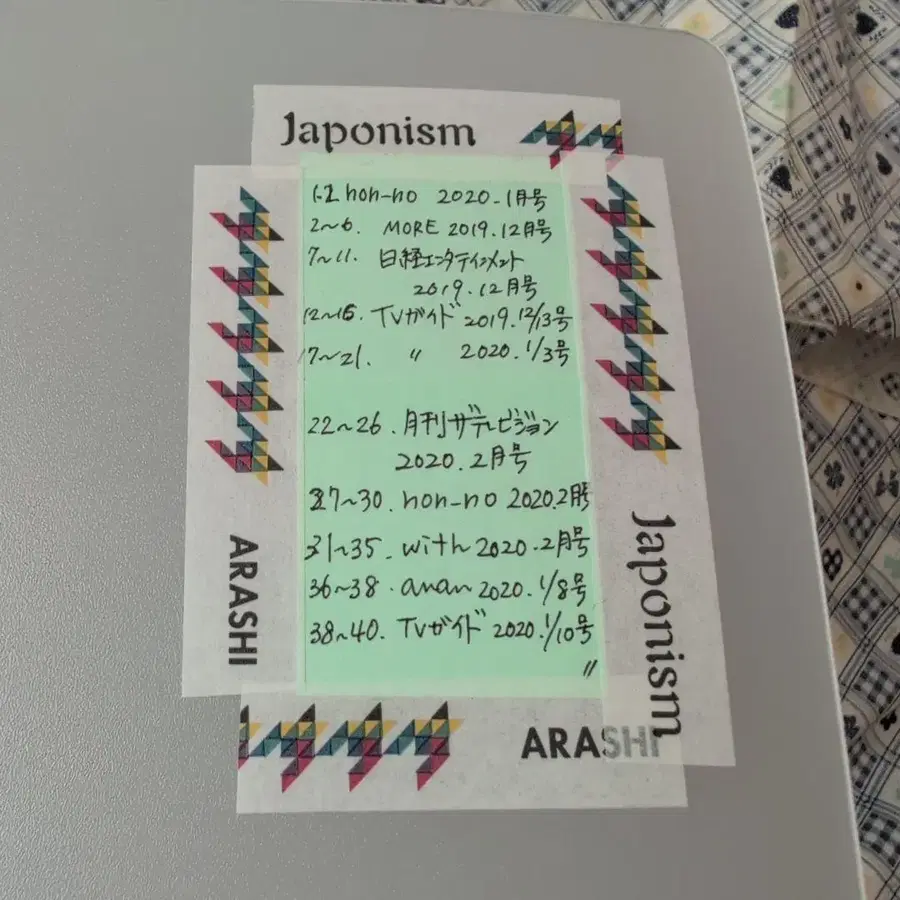 Japonism
1.2 non-no 2020.1月号
2~6. MORE 2019.12月号
7~11. 日経エンタテインメント
2019.12月号
12~16. TVガイド 2019.12/13号
17~21. 〃 2020.1/3号
22~26. 月刊ザテレビジョン
2020.2月号
27~30. non-no 2020.2月号
31~35. with 2020.2月号
36~38. anan 2020.1/8号
38~40. TVガイド 2020.1/10号
〃
ARASHI
Japonism
ARASHI